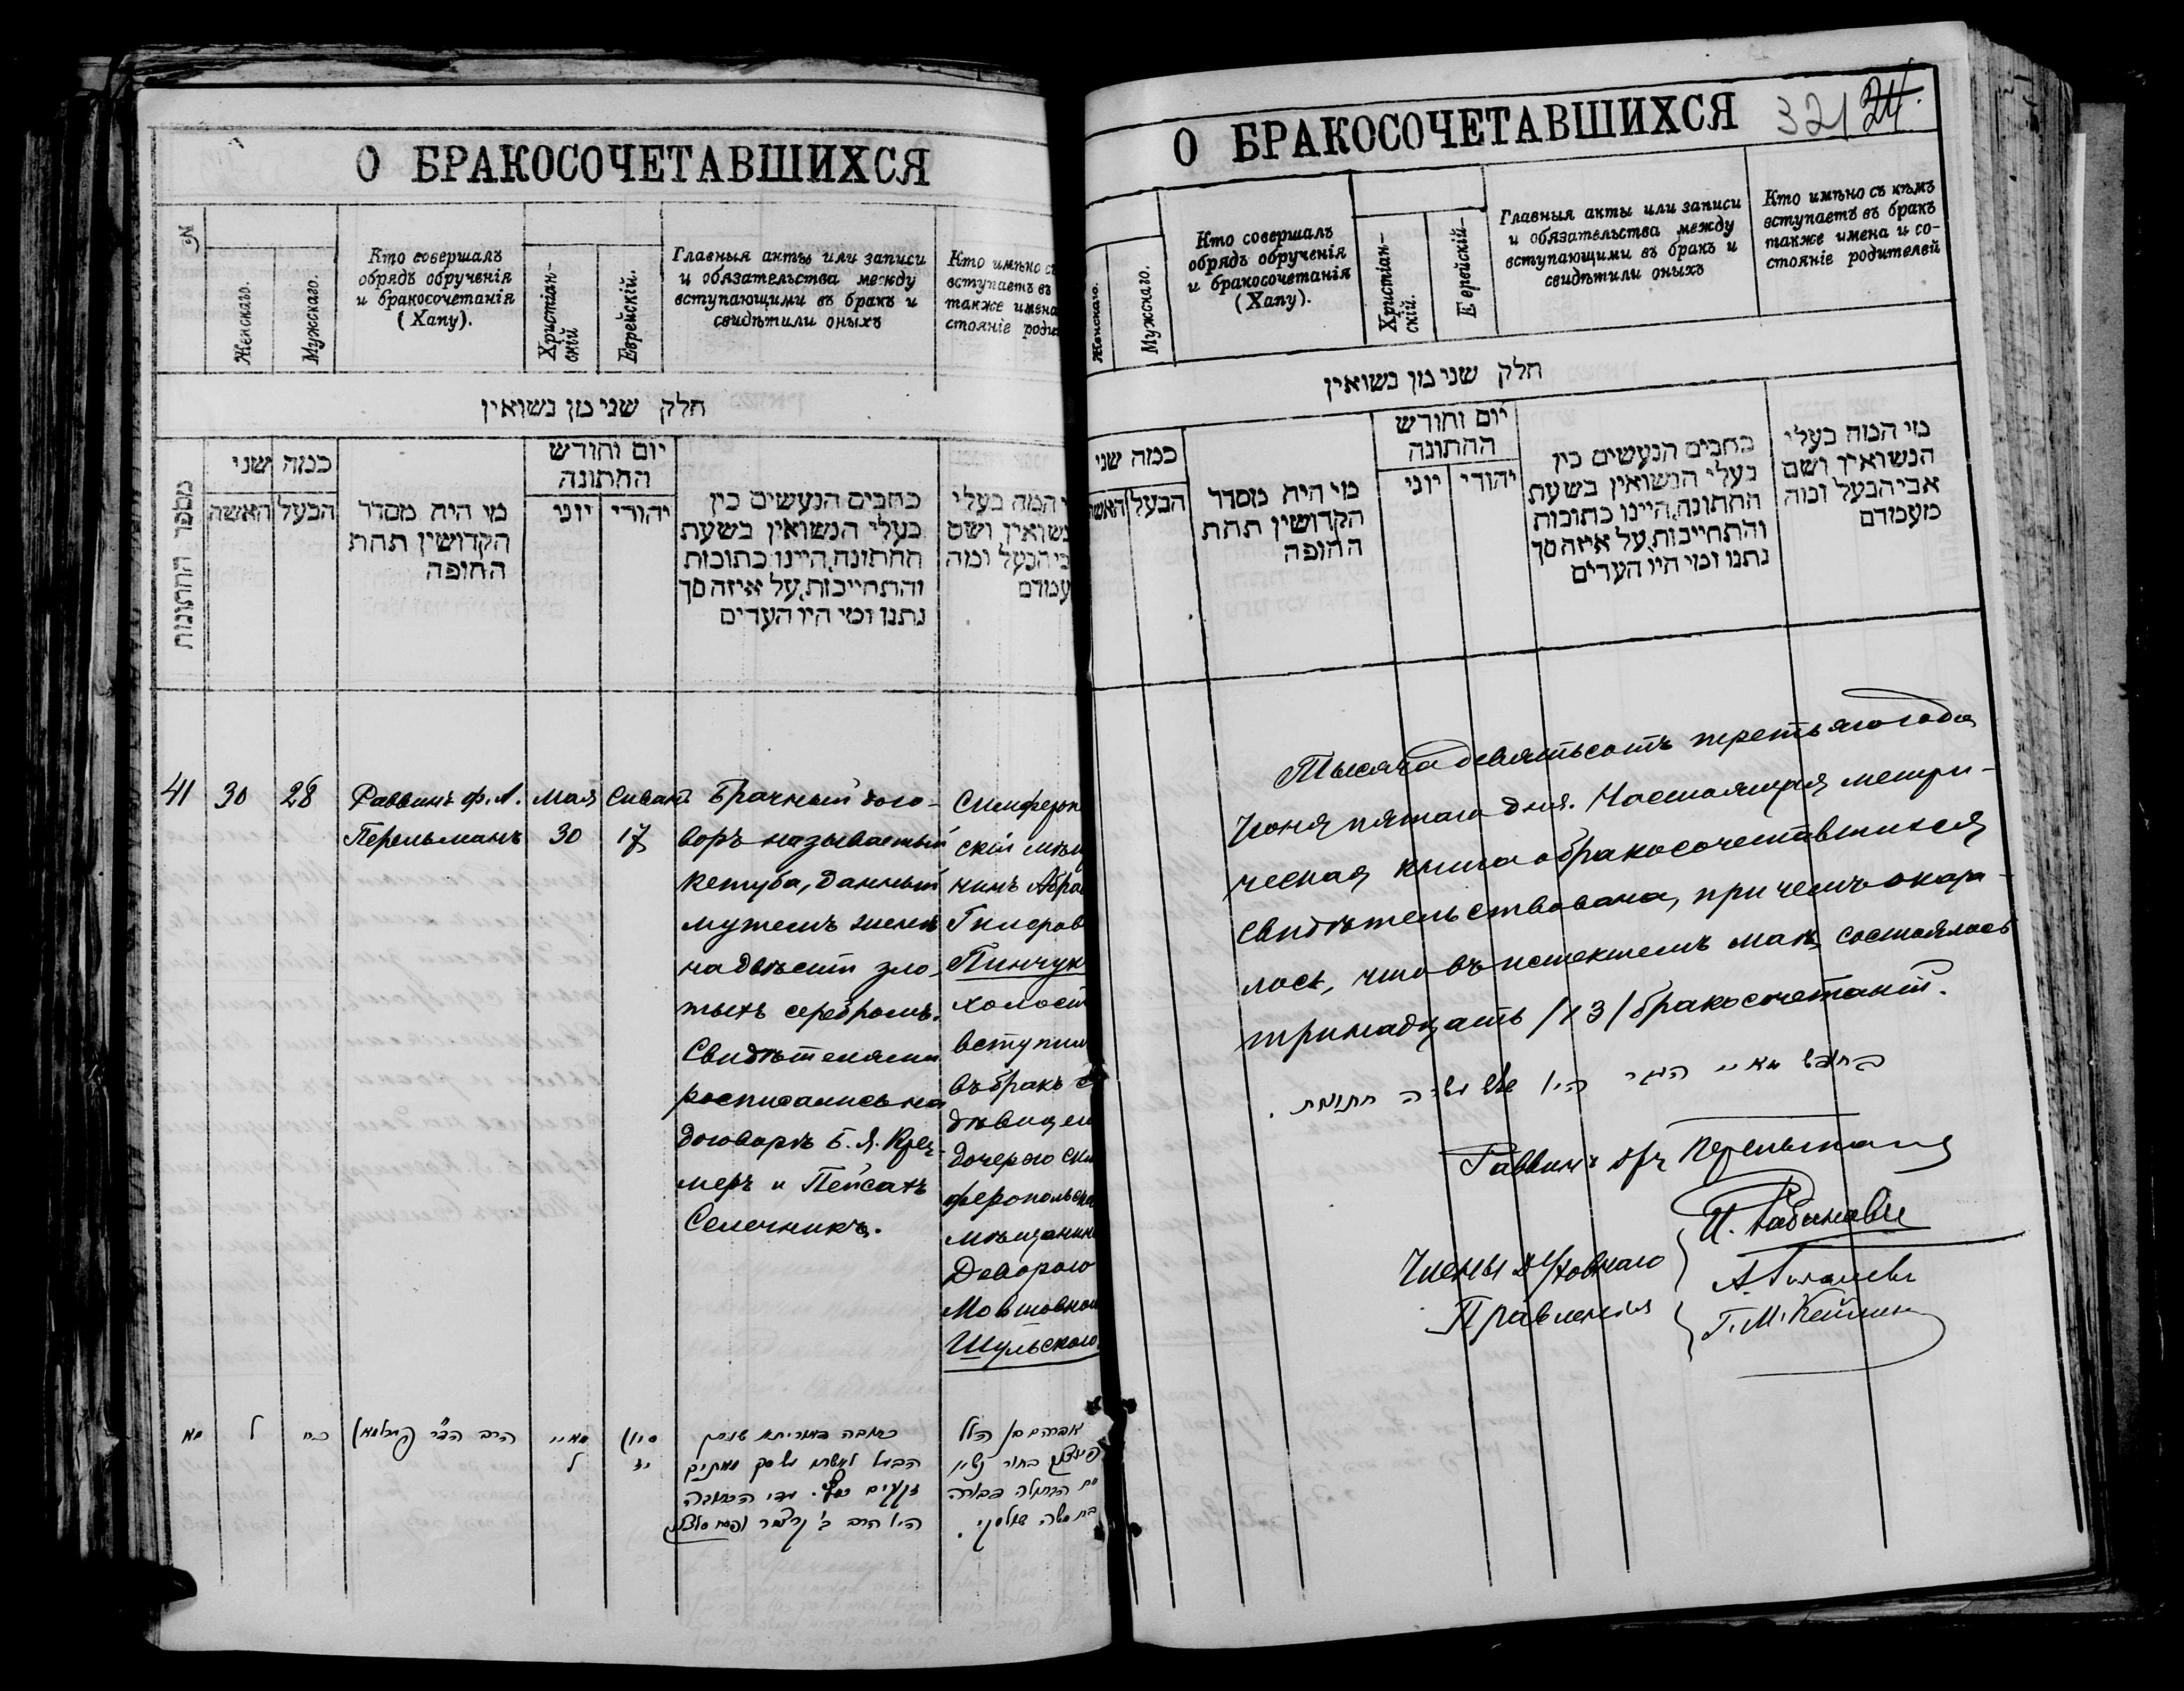 О БРАКОСОЧЕТАВШИХСЯ
№
Женскаго.
Мужскаго.
Кто совершалъ
обрядъ обрученія
и бракосочетанія
(Хапу).
Христіан-
скій
Еврейскій.
Главныя акты или записи
и обязательства между
вступающими въ бракъ и
свидѣтили оныхъ
Кто имѣно съ
вступаетъ въ
также имена
стояніе роди
חלק שני מן נשואין
מספר החתונות
כמה שני
האשה
הבעל
מי היה מסדר
הקדושין תחת
החופה
יום וחודש
החתונה
יוני
יהודי
כתבים הנעשים בין
בעלי הנשואין בשעת
החתונה, היינו כתובות
והתחייבות, על איזה סך
נתנו ומי היו העדים
י המה בעלי
נשואין ושם
בי הבעל ומה
עמדם
41 30 28
Раввинъ ф. А.
Перельманъ
Мая
30
Сивань
17
Брачный дого-
воръ называемый
кетуба, данный
мужемъ женѣ
на двѣсти зло-
тыхъ серебромъ.
Свидѣтелями
росписались на
договорѣ Б. Я. Крец-
меръ и Пейсахъ
Селечникъ.
Симфероп
скій мѣщ
нинъ Абра
Гилеров
Пинчук
холост
вступил
въ бракъ с
дѣвицей
дочерью Сим
феропольска
мѣщанин
Деворою
Мовшовной
Шульскою
מא
ל
כח
מאיי
ל
סיון
יז
О БРАКОСОЧЕТАВШИХСЯ
321 24.
Женскаго.
Мужскаго.
Кто совершалъ
обрядъ обрученія
и бракосочетанія
(Хапу).
Христіан-
скій.
Е врейскій-
Главныя акты или записи
и обязательства между
вступающими въ бракъ и
свидѣтили оныхъ
Кто имѣно съ кѣмъ
вступаетъ въ бракъ
также имена и со-
стояніе родителей
חלק שני מן נשואין
כמה שני
האשה
הבעל
מי היה מסדר
הקדושין תחת
החופה
יום וחודש
החתונה
יוני
יהודי
כתבים הנעשים בין
בעלי הנשואין בשעת
החתונה, היינו כתובות
והתחייבות, על איזה סך
נתנו ומי היו העדים
מי המה בעלי
הנשואין ושם
אבי הבעל ומה
מעמדם
Тысяча девятьсотъ третьяго года
Іюня пятаго дня. Настоящая метри-
ческая книга о бракосочетавшихся
свидѣтельствована, при чемъ оказа-
лось, что въ истекшемъ маѣ состоялось
тринадцать /13/ бракосочетаній.
Раввинъ Перельманъ
Члены Духовнаго
Правленія
И. Рабиновичъ